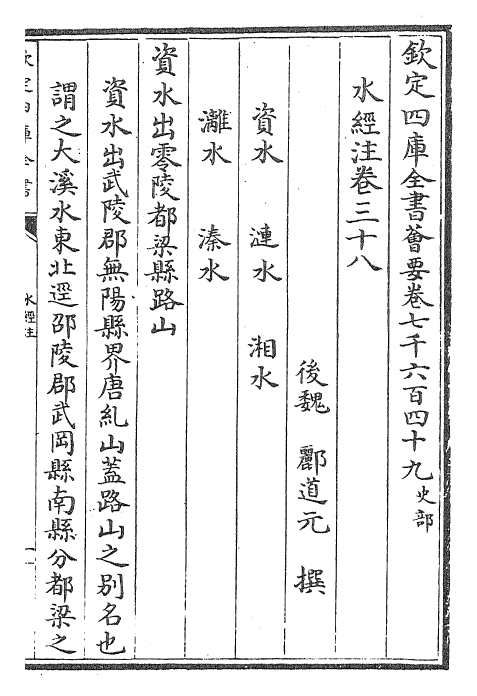 欽定四庫全書薈要卷七千六百四十九 史部
水經注卷三十八
後魏 酈道元 撰
資水 漣水 湘水
灕水 溱水
資水出零陵都梁縣路山
資水出武陵郡無陽縣界唐糺山蓋路山之别名也
謂之大溪水東北逕邵陵郡武岡縣南縣分都梁之
欽定四庫全書
水經注
一